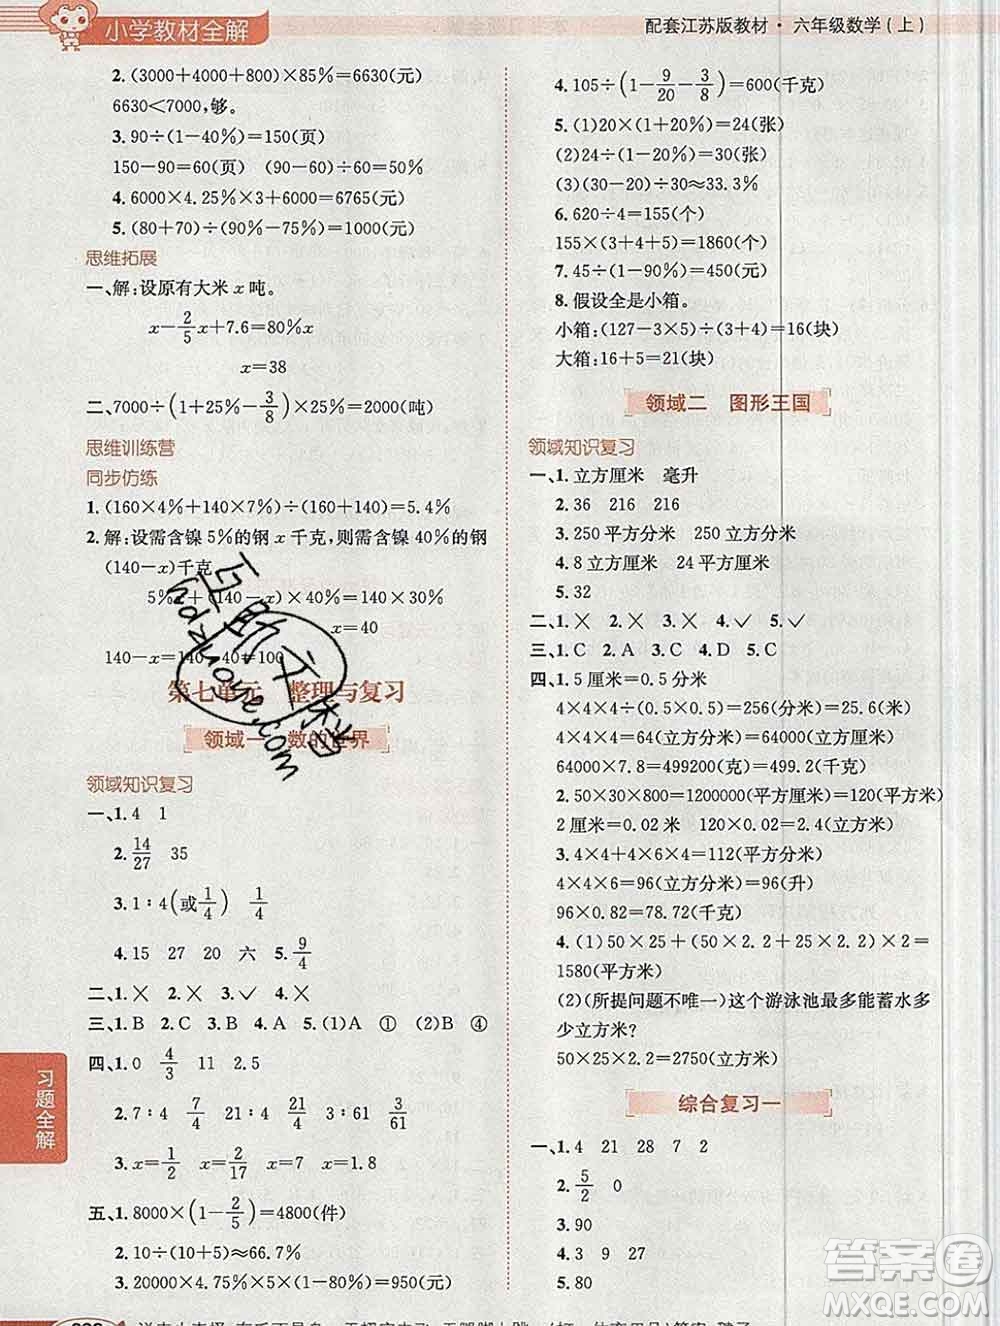 小学教材全解
配套江苏版教材·六年级数学(上)
2.(3000+4000+800)×85%=6630(元)
6630<7000,够。
3.90÷(1-40%)=150(页)
150-90=60(页) (90-60)÷60=50%
4.6000×4.25%×3+6000=6765(元)
5.(80+70)÷(90%-75%)=1000(元)
思维拓展
一、解:设原有大米x吨。
x-2/5x+7.6=80%x
x=38
二、7000÷(1+25%-3/8)×25%=2000(吨)
思维训练营
同步仿练
1.(160×4%+140×7%)÷(160+140)=5.4%
2.解:设需含镍5%的钢x千克,则需含镍40%的钢
(140-x)千克
5%x+(140-x)×40%=140×30%
x=40
140-x=140-40=100
第七单元 整理与复习
领域一 数的世界
领域知识复习
一、1.4 1
2.14/27 35
3.1∶4(或1/4) 1/4
4.15 27 20 六 5.9/4
二、1.× 2.× 3.√ 4.× 5.×
三、1.B 2.C 3.B 4.A 5.(1)A ① (2)B ④
四、1.0 4/3 11 2.5
2.7∶4 7/4 21∶4 21/4 3∶61 3/61
3.x=1/2 x=2/17 x=7 x=1.8
五、1.8000×(1-2/5)=4800(件)
2.10÷(10+5)≈66.7%
3.20000×4.75%=950(元)
4.105÷(1-9/20-3/8)=600(千克)
5.(1)20×(1+20%)=24(张)
(2)24÷(1-20%)=30(张)
(3)(30-20)÷30≈33.3%
6.620÷4=155(个)
155×(3+4+5)=1860(个)
7.45÷(1-90%)=450(元)
8.假设全是小箱。
小箱:(127-3×5)÷(3+4)=16(块)
大箱:16+5=21(块)
领域二 图形王国
领域知识复习
一、1.立方厘米 毫升
2.36 216 216
3.250平方分米 250立方分米
4.8立方厘米 24平方厘米
5.32
二、1.× 2.× 3.× 4.√ 5.√
三、1.C 2.A 3.C 4.D 5.C
四、1.5厘米=0.5分米
4×4×4÷(0.5×0.5)=256(分米)=25.6(米)
4×4×4=64(立方分米)=64000(立方厘米)
64000×7.8=499200(克)=499.2(千克)
2.50×30×800=1200000(平方厘米)=120(平方米)
2厘米=0.02米 120×0.02=2.4(立方米)
3.4×4+4×6×4=112(平方分米)
4×4×6=96(立方分米)=96(升)
96×0.82=78.72(千克)
4.(1)50×25+(50×2.2+25×2.2)×2=
1580(平方米)
(2)(所提问题不唯一)这个游泳池最多能蓄水多
少立方米?
50×25×2.2=2750(立方米)
综合复习一
一、1.4 21 28 7 2
2.5/2 0
3.90
4.3 9 27
5.80
习题全解
互助文档
hdzuoye.com
答案圈
MXQE.COM